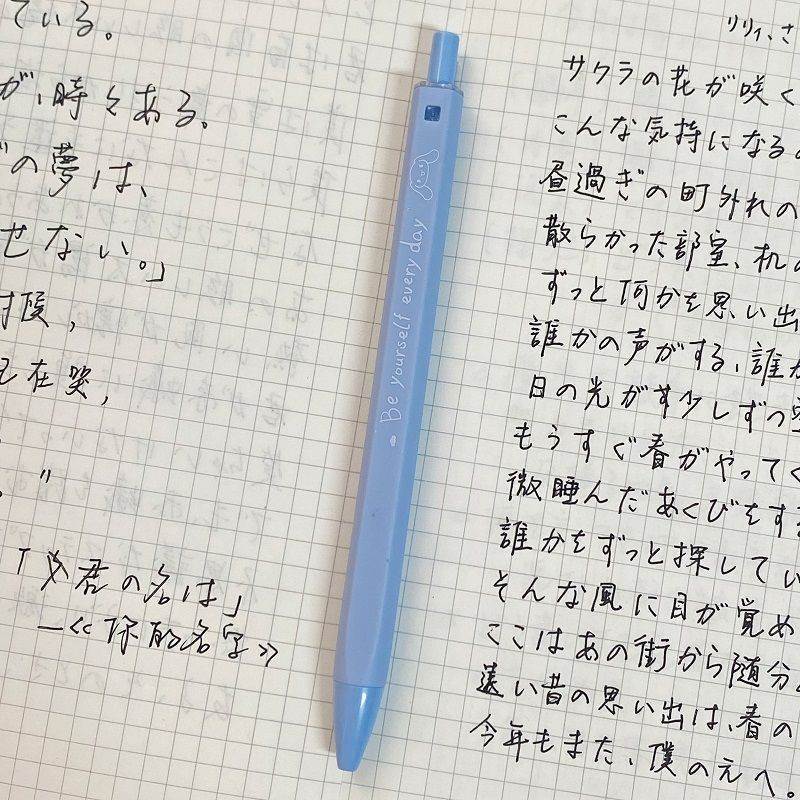 ている。
が、時々ある。
の夢は、
せない。」
候，
在哭，
。"
「君の名は」
—《你的名字》
Be yourself every day
リリィ、さ
サクラの花が咲く
こんな気持になる
昼過ぎの町外れの
散らかった部室、机
ずっと何かを思い出
誰かの声がする、誰か
日の光が少しずつ
もうすぐ春がやってく
微睡んだあくびをす
誰かをずっと探してい
そんな風に目が覚め
ここはあの街から随分
遠い昔の思い出は、春の
今年もまた、僕のえへ。